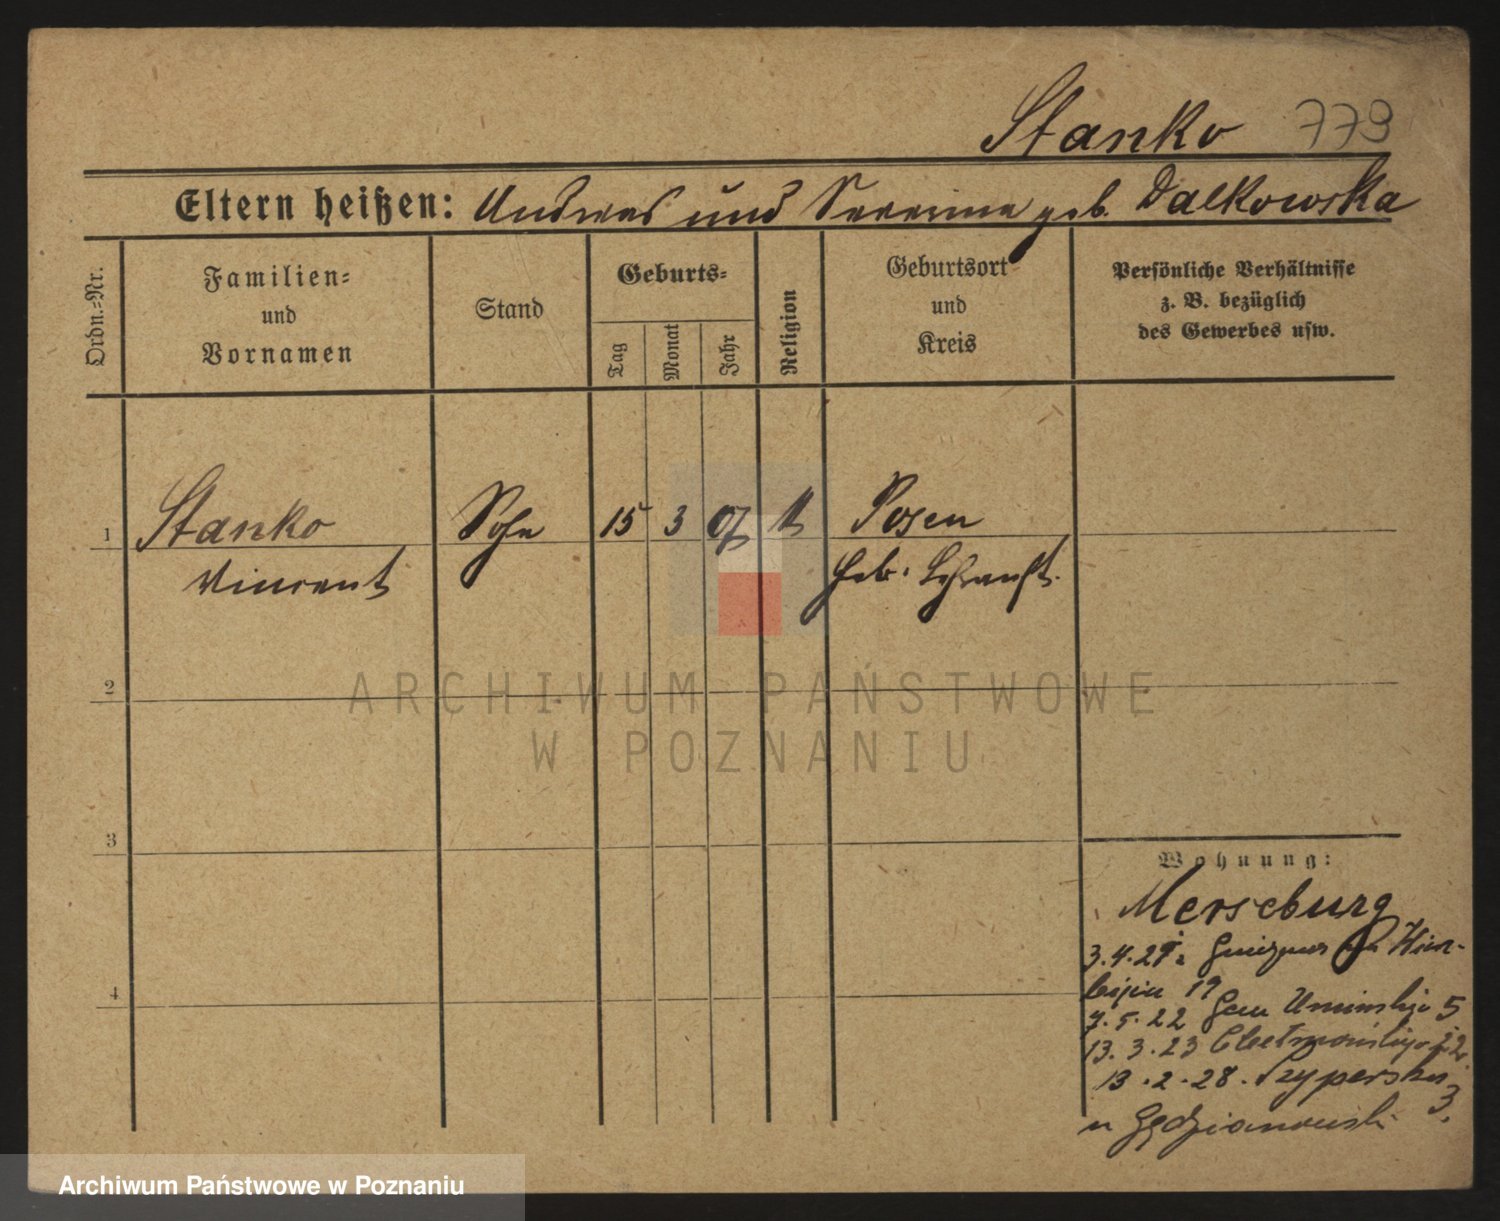 Stanko 779
Eltern heißen: Andreas und Severina geb. Dalkowska
Ordn.-Nr.
Familien-
und
Vornamen
Stand
Geburts-
Tag
Monat
Jahr
Religion
Geburtsort
und
Kreis
Persönliche Verhältnisse
z. B. bezüglich
des Gewerbes usw.
1 Stanko Sohn 15 3 07 Posen
Vincent geb.
2
ARCHIWUM PAŃSTWOWE
W POZNANIU
3
Wohnung:
Merseburg
3.4.21
19
7.5.22 Gen Umińskiego 5
13.3.23
13.2.28. Szyperska
3.
u
4
Archiwum Państwowe w Poznaniu